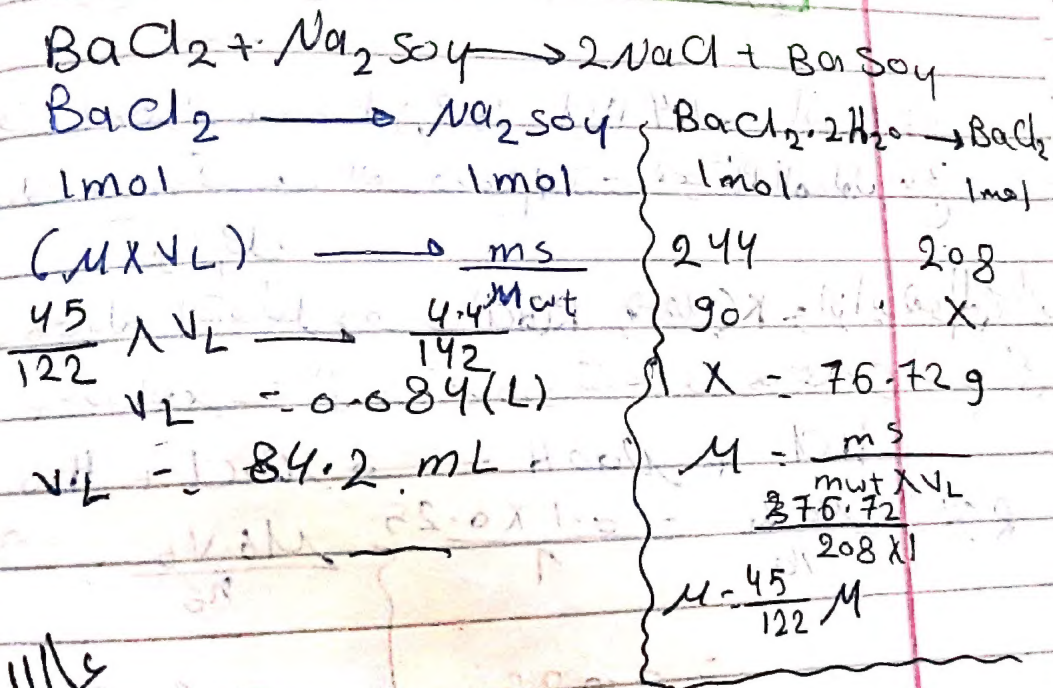 BaCl2 + Na2SO4 → 2NaCl + BaSO4
BaCl2 → Na2SO4
1mol 1mol
(M X VL) → ms / Mwt
45/122 X VL → 4.4/142
VL = 0.084(L)
V.L = 84.2 mL
BaCl2.2H2O → BaCl2
1mol 1mol
244 208
90 X
X = 76.72 g
M = ms / mwt X VL
76.72 / 208 X1
M = 45/122 M